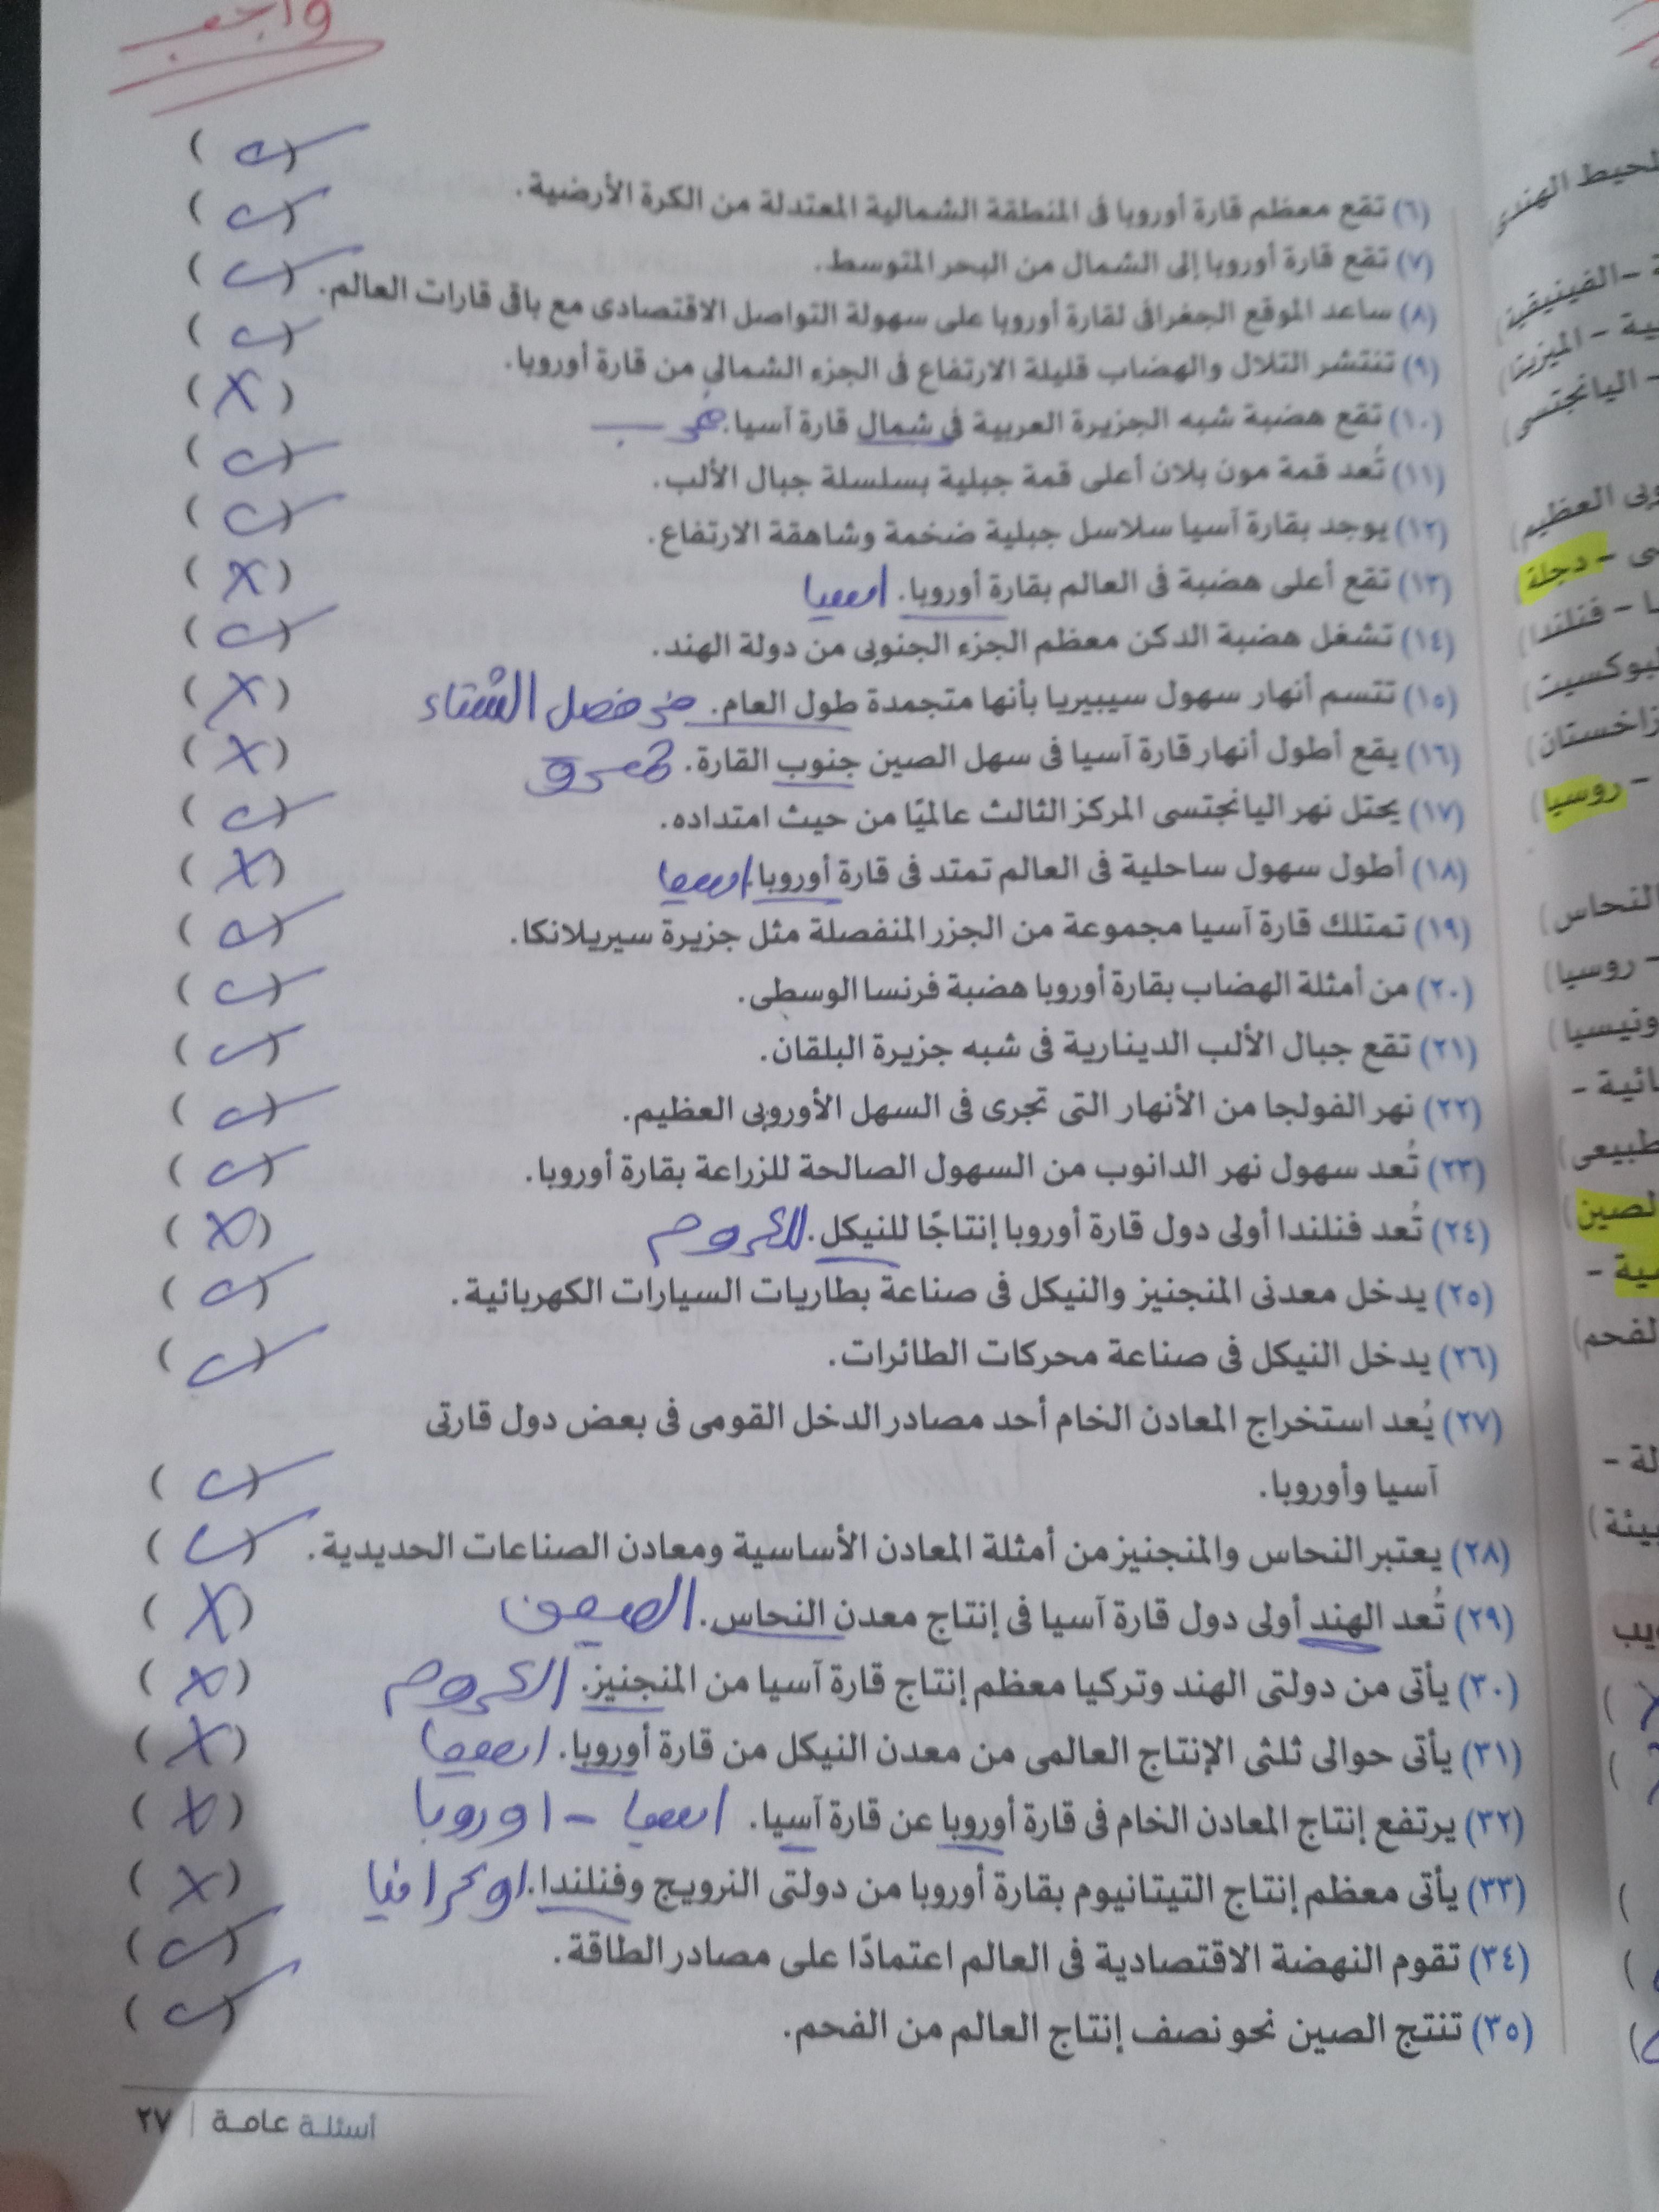 واجب
(٦) تقع معظم قارة أوروبا فى المنطقة الشمالية المعتدلة من الكرة الأرضية. (✓)
(٧) تقع قارة أوروبا إلى الشمال من البحر المتوسط. (✓)
(٨) ساعد الموقع الجغرافى لقارة أوروبا على سهولة التواصل الاقتصادى مع باقى قارات العالم. (✓)
(٩) تنتشر التلال والهضاب قليلة الارتفاع فى الجزء الشمالى من قارة أوروبا. (✓)
(١٠) تقع هضبة شبه الجزيرة العربية فى شمال قارة آسيا. غرب (X)
(١١) تُعد قمة مون بلان أعلى قمة جبلية بسلسلة جبال الألب. (✓)
(١٢) يوجد بقارة آسيا سلاسل جبلية ضخمة وشاهقة الارتفاع. (✓)
(١٣) تقع أعلى هضبة فى العالم بقارة أوروبا. اسيا (X)
(١٤) تشغل هضبة الدكن معظم الجزء الجنوبى من دولة الهند. (✓)
(١٥) تتسم أنهار سهول سيبيريا بأنها متجمدة طول العام. فى فصل الشتاء (X)
(١٦) يقع أطول أنهار قارة آسيا فى سهل الصين جنوب القارة. شرق (X)
(١٧) يحتل نهر اليانجتسى المركز الثالث عالميًا من حيث امتداده. (✓)
(١٨) أطول سهول ساحلية فى العالم تمتد فى قارة أوروبا. اسيا (X)
(١٩) تمتلك قارة آسيا مجموعة من الجزر المنفصلة مثل جزيرة سيريلانكا. (✓)
(٢٠) من أمثلة الهضاب بقارة أوروبا هضبة فرنسا الوسطى. (✓)
(٢١) تقع جبال الألب الدينارية فى شبه جزيرة البلقان. (✓)
(٢٢) نهر الفولجا من الأنهار التى تجرى فى السهل الأوروبى العظيم. (✓)
(٢٣) تُعد سهول نهر الدانوب من السهول الصالحة للزراعة بقارة أوروبا. (✓)
(٢٤) تُعد فنلندا أولى دول قارة أوروبا إنتاجًا للنيكل. للكروم (X)
(٢٥) يدخل معدنى المنجنيز والنيكل فى صناعة بطاريات السيارات الكهربائية. (✓)
(٢٦) يدخل النيكل فى صناعة محركات الطائرات. (✓)
(٢٧) يُعد استخراج المعادن الخام أحد مصادر الدخل القومى فى بعض دول قارتى
آسيا وأوروبا. (✓)
(٢٨) يعتبر النحاس والمنجنيز من أمثلة المعادن الأساسية ومعادن الصناعات الحديدية. (✓)
(٢٩) تُعد الهند أولى دول قارة آسيا فى إنتاج معدن النحاس. الصين (X)
(٣٠) يأتى من دولتى الهند وتركيا معظم إنتاج قارة آسيا من المنجنيز. الكروم (X)
(٣١) يأتى حوالى ثلثى الإنتاج العالمى من معدن النيكل من قارة أوروبا. اسيا (X)
(٣٢) يرتفع إنتاج المعادن الخام فى قارة أوروبا عن قارة آسيا. اسيا - اوروبا (X)
(٣٣) يأتى معظم إنتاج التيتانيوم بقارة أوروبا من دولتى النرويج وفنلندا. اوكرانيا (X)
(٣٤) تقوم النهضة الاقتصادية فى العالم اعتمادًا على مصادر الطاقة. (✓)
(٣٥) تنتج الصين نحو نصف إنتاج العالم من الفحم. (✓)
أسئلة عامة | ٢٧
لمحيط الهندى
- الفينيقية
- الميزيتا
- اليانجتسى
وبى العظيم
- دجلة
- فنلندا
لبوكسيت
زاخستان
- روسيا
النحاس
- روسيا
ونيسيا
ائية -
طبيعى
لصين
مية -
لفحم
لة -
بيئة
ويب